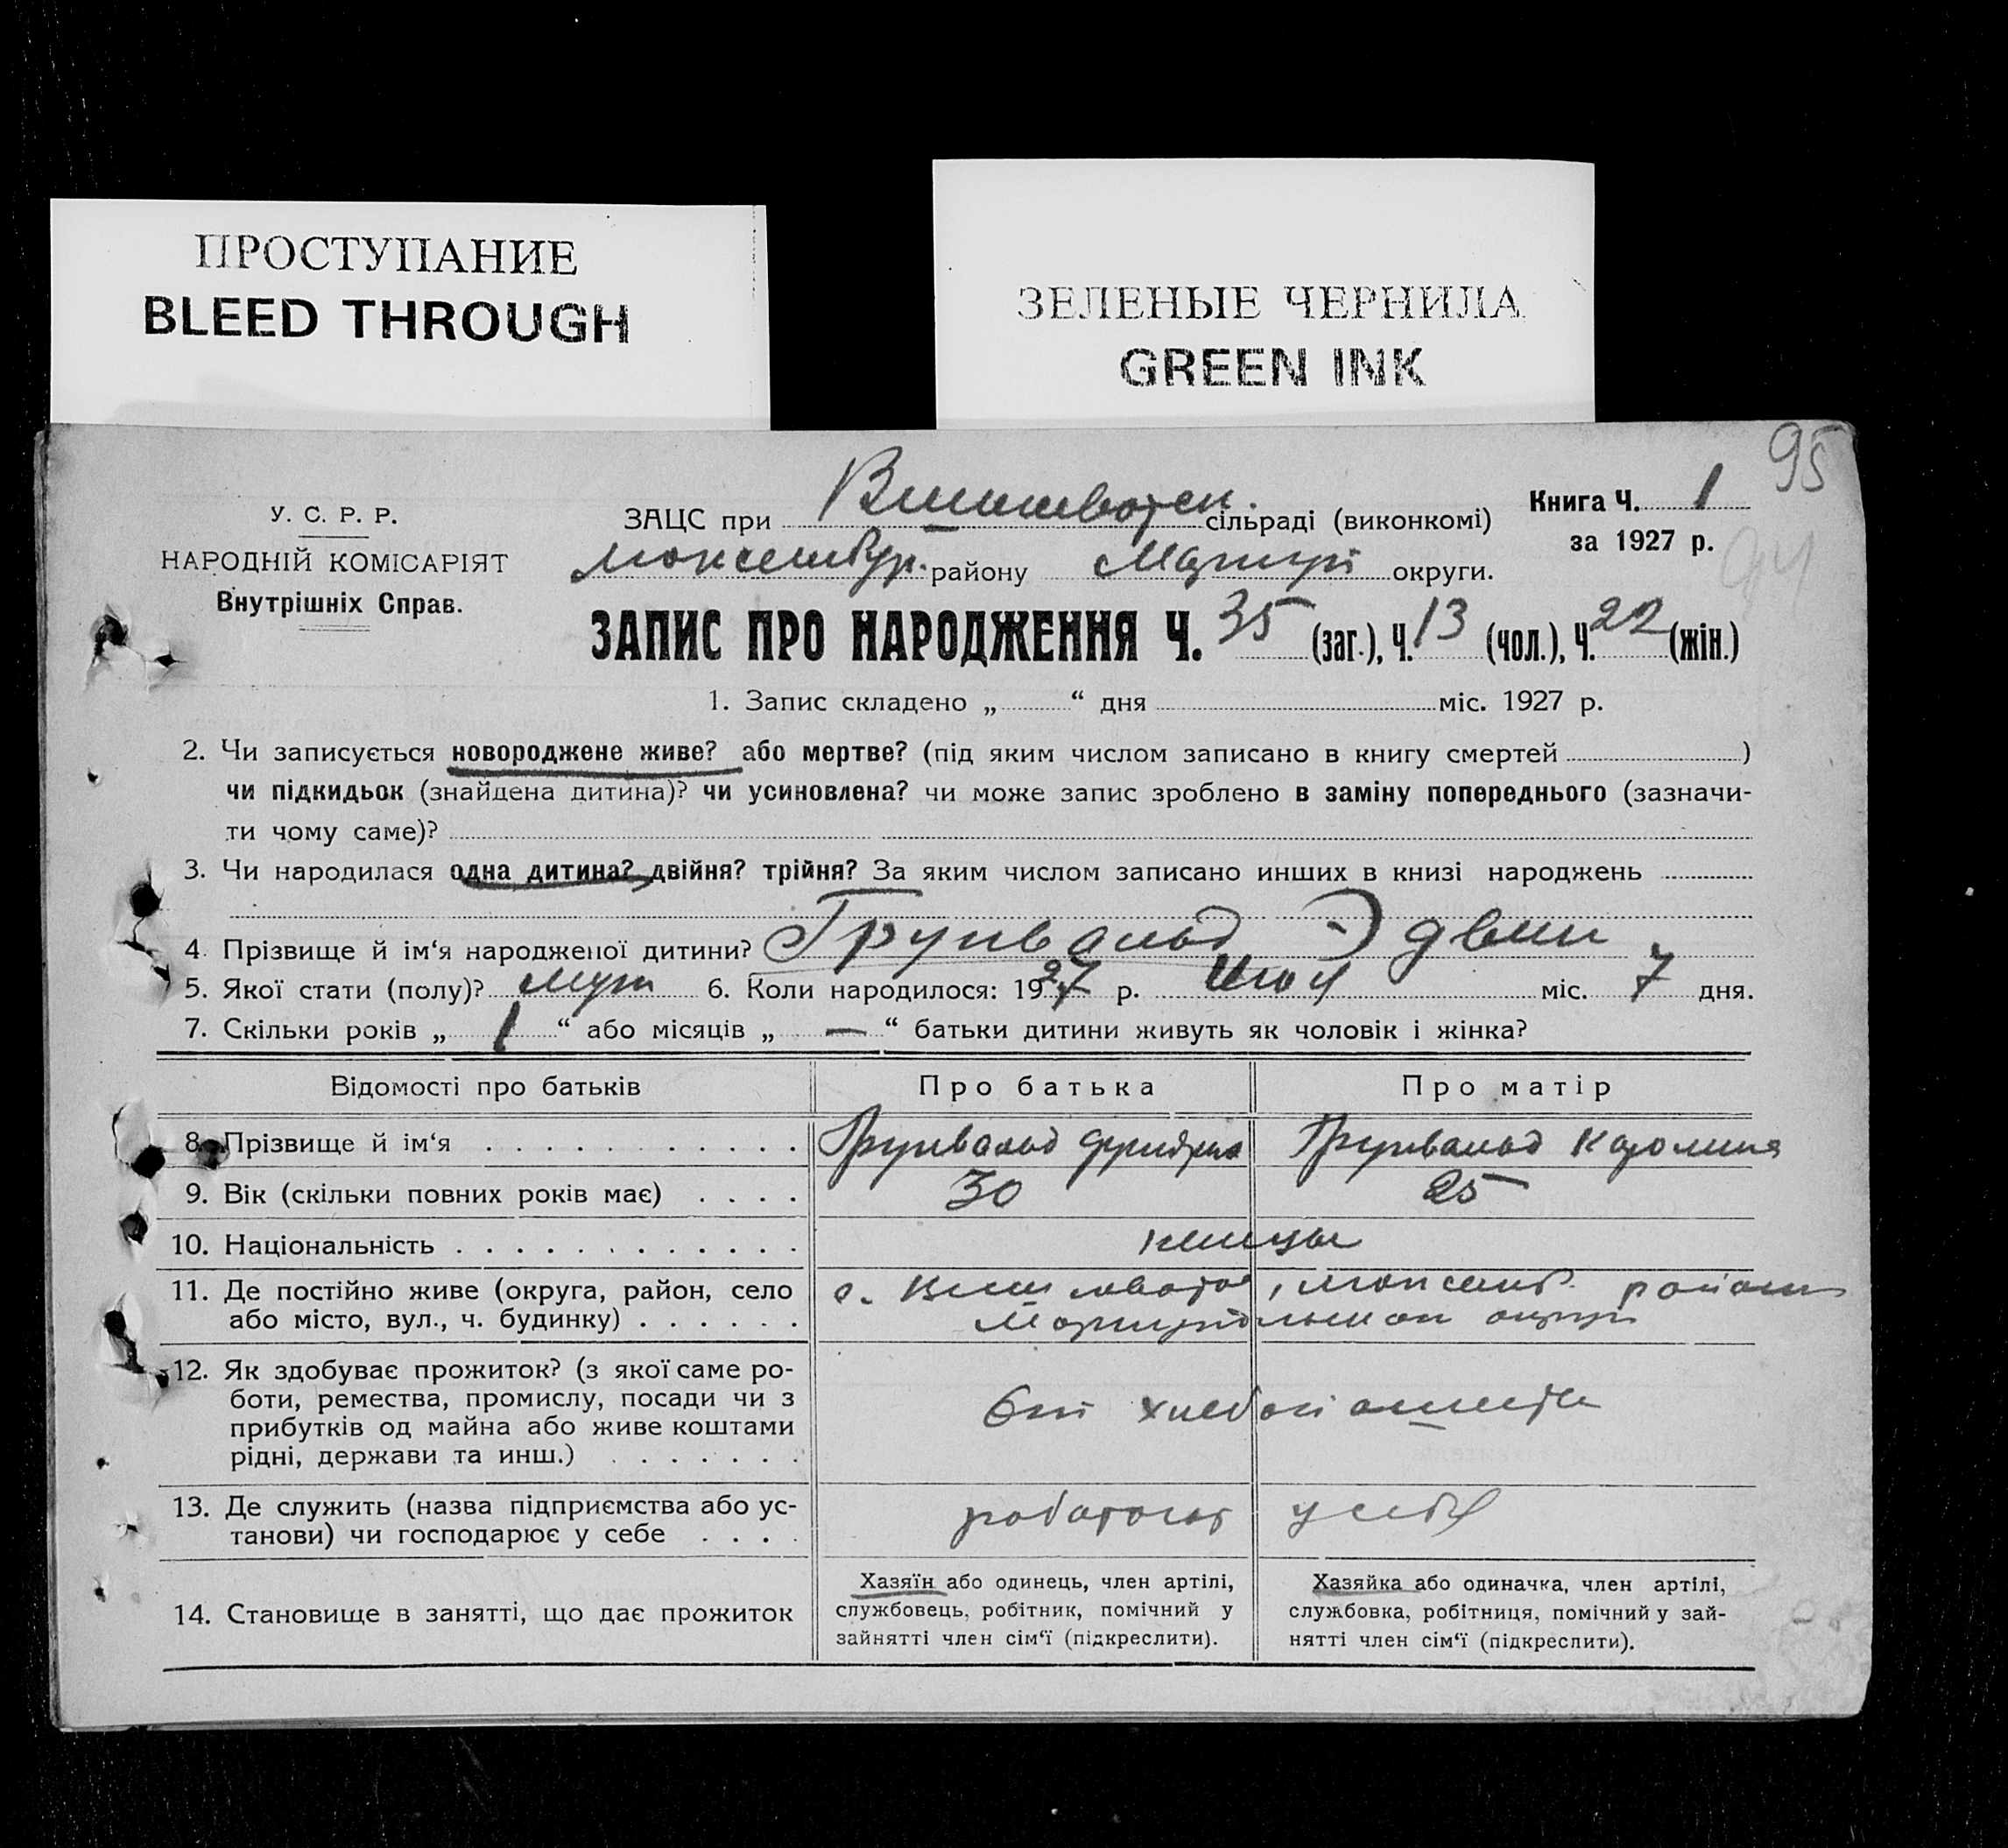 ПРОСТУПАНИЕ
BLEED THROUGH
ЗЕЛЕНЫЕ ЧЕРНИЛА
GREEN INK
95
94
У. С. Р. Р.
НАРОДНІЙ КОМІСАРІЯТ
Внутрішніх Справ.
ЗАЦС при сільраді (виконкомі)
району округи.
Книга Ч. 1
за 1927 р.
ЗАПИС ПРО НАРОДЖЕННЯ Ч. 35 (заг.), Ч. 13 (чол.), Ч. 22 (жін.)
1. Запис складено „ “ дня міс. 1927 р.
2. Чи записується новороджене живе? або мертве? (під яким числом записано в книгу смертей )
чи підкидьок (знайдена дитина)? чи усиновлена? чи може запис зроблено в заміну попереднього (зазначи-
ти чому саме)?
3. Чи народилася одна дитина? двійня? трійня? За яким числом записано инших в книзі народжень
4. Прізвище й ім‘я народженої дитини? Грунвальд Эдвин
5. Якої стати (полу)? муж 6. Коли народилося: 1927 р. міс. 7 дня.
7. Скільки років „ 1 “ або місяців „ — “ батьки дитини живуть як чоловік і жінка?
Відомості про батьків Про батька Про матір
8. Прізвище й ім‘я Грунвальд Фридрих Грунвальд Каролина
9. Вік (скільки повних років має) 30 25
10. Національність немцы
11. Де постійно живе (округа, район, село
або місто, вул., ч. будинку)
12. Як здобуває прожиток? (з якої саме ро-
боти, ремества, промислу, посади чи з
прибутків од майна або живе коштами
рідні, держави та инш.)
13. Де служить (назва підприємства або ус-
танови) чи господарює у себе работают у себя
14. Становище в занятті, що дає прожиток
Хазяїн або одинець, член артілі,
службовець, робітник, помічний у
зайнятті член сім‘ї (підкреслити).
Хазяйка або одиначка, член артілі,
службовка, робітниця, помічний у зай-
нятті член сім‘ї (підкреслити).